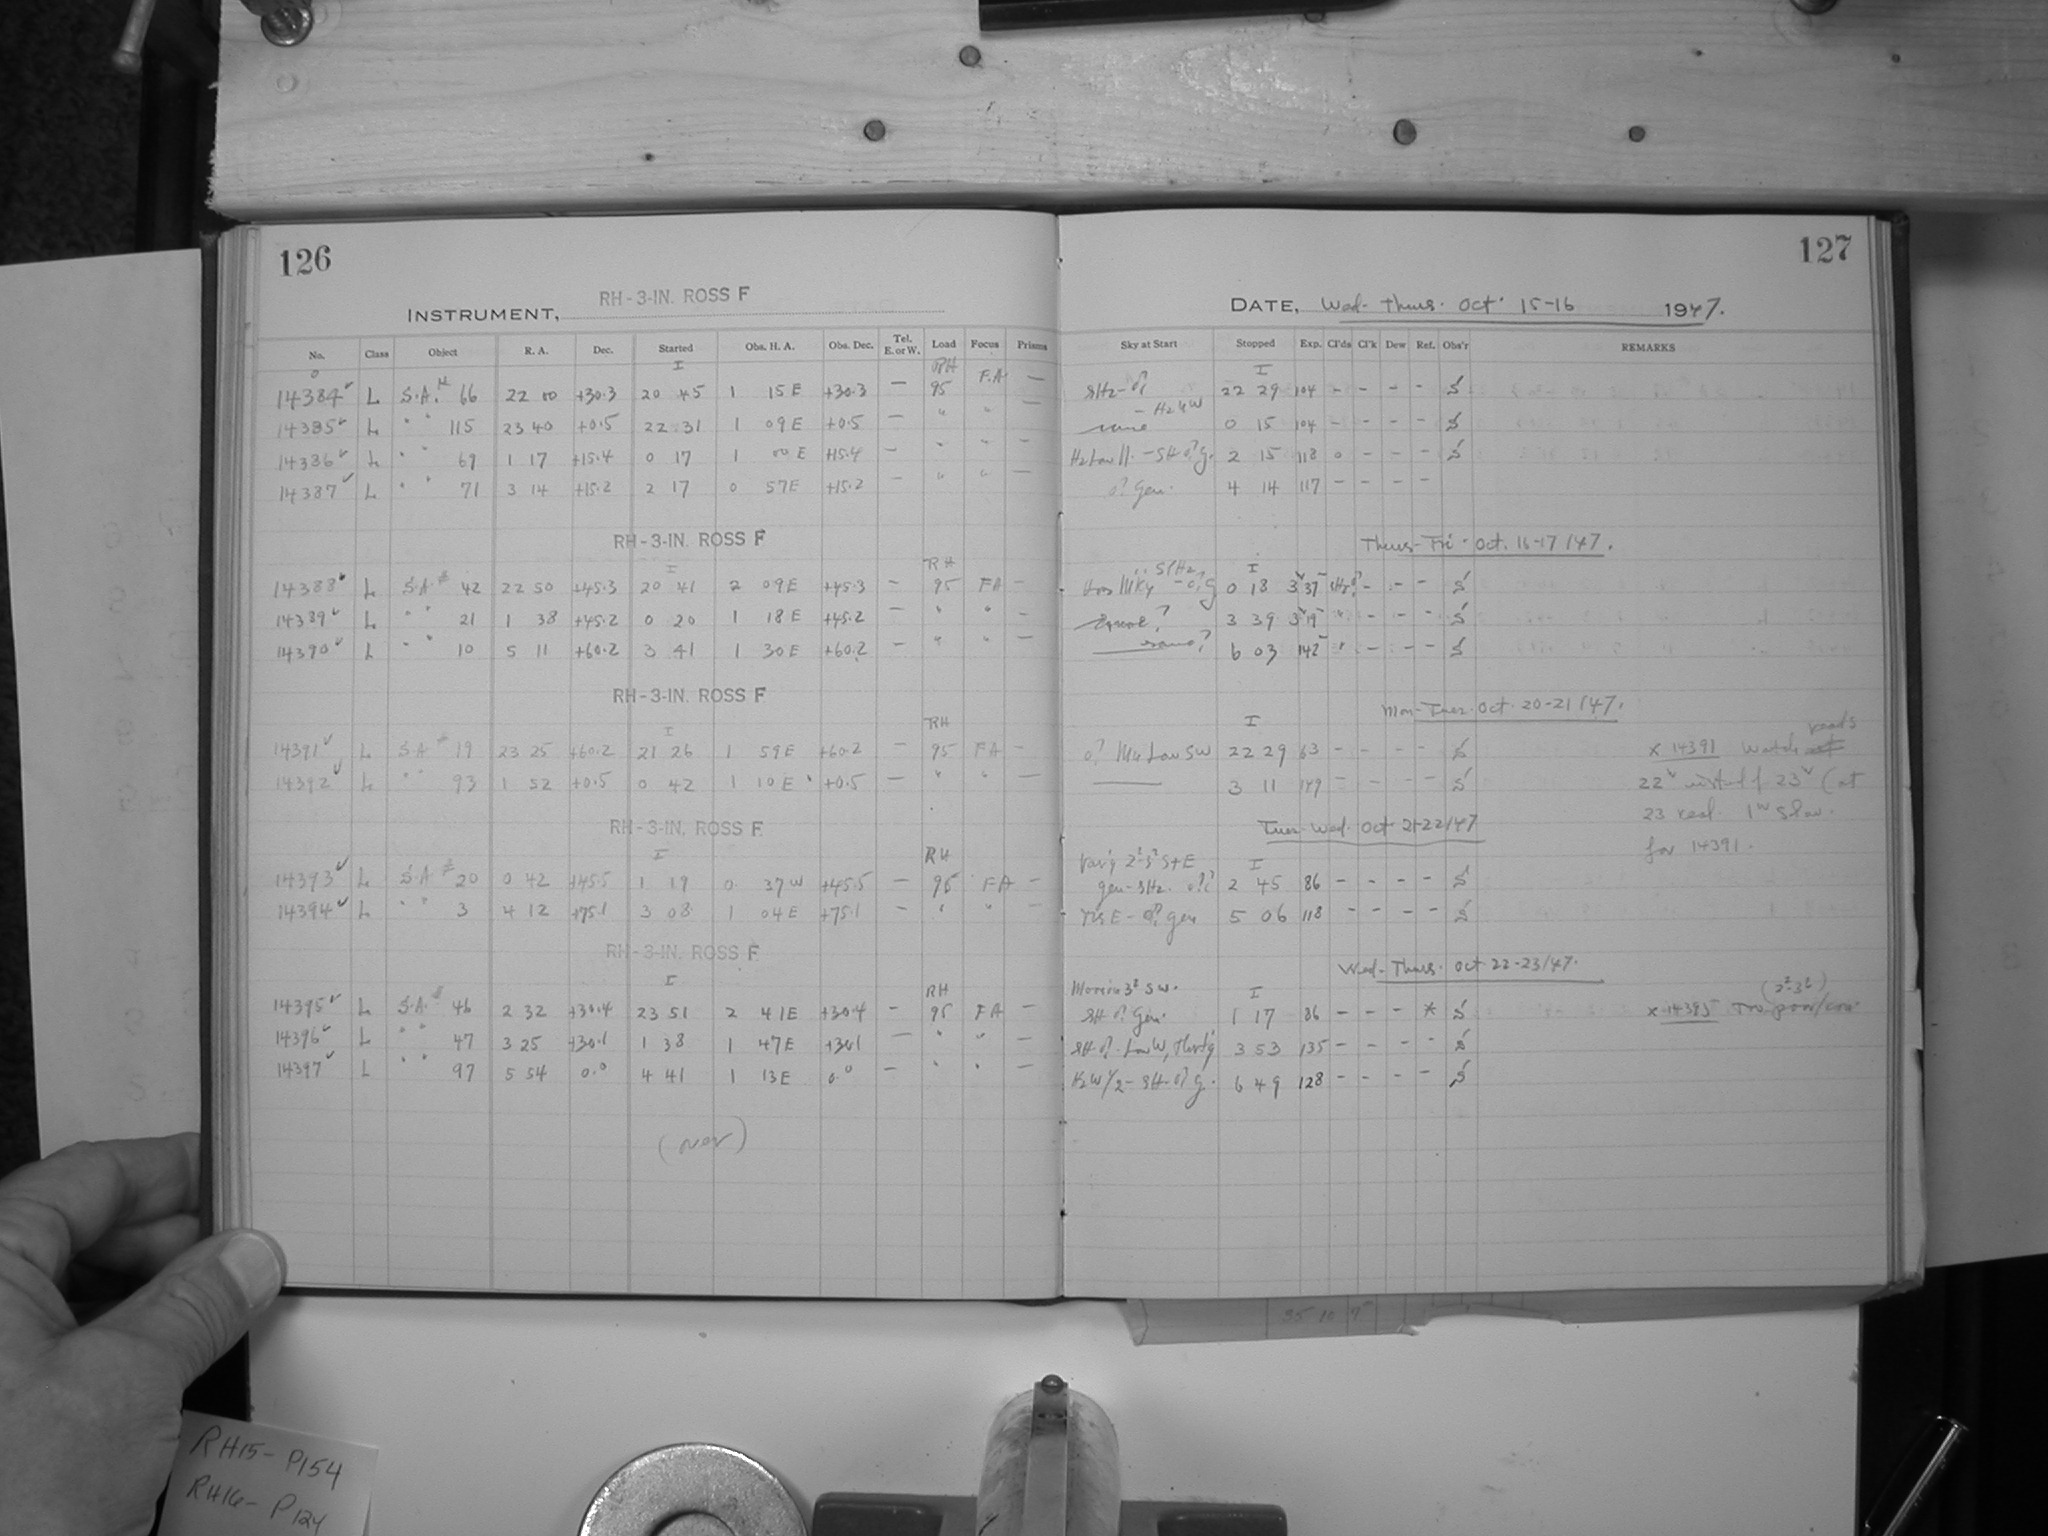 126
INSTRUMENT, RH-3-IN. ROSS F
No. Class Object R. A. Dec. Started Obs. H. A. Obs. Dec. Tel. E. or W. Load Focus Prisms
I RH
14384 L S.A. # 66 22 00 +30.3 20 45 1 15 E +30.3 — 95 F.A —
14385 L " " 115 23 40 +0.5 22 31 1 09 E +0.5 — " " —
14386 L " " 69 1 17 +15.4 0 17 1 00 E +15.4 — " " —
14387 L " " 71 3 14 +15.2 2 17 0 57 E +15.2 — " " —
RH-3-IN. ROSS F
I RH
14388 L S.A. # 42 22 50 +45.3 20 41 2 09 E +45.3 — 95 FA —
14389 L " " 21 1 38 +45.2 0 20 1 18 E +45.2 — " " —
14390 L " " 10 5 11 +60.2 3 41 1 30 E +60.2 — " " —
RH-3-IN. ROSS F
I RH
14391 L S.A # 19 23 25 +60.2 21 26 1 59 E +60.2 — 95 FA —
14392 L " " 93 1 52 +0.5 0 42 1 10 E +0.5 — " " —
RH-3-IN. ROSS F
I RH
14393 L S.A # 20 0 42 +45.5 1 19 0 37 W +45.5 — 95 FA —
14394 L " " 3 4 12 +75.1 3 08 1 04 E +75.1 — " " —
RH-3-IN. ROSS F
I RH
14395 L S.A. # 46 2 32 +30.4 23 51 2 41 E +30.4 — 95 FA —
14396 L " " 47 3 25 +30.1 1 38 1 47 E +30.1 — " " —
14397 L " " 97 5 54 0.0 4 41 1 13 E 0.0 — " " —
(over)
127
DATE, Wed-Thurs. Oct. 15-16 1947.
Sky at Start Stopped Exp. Cl'ds Cl'k Dew Ref. Obs'r REMARKS
I
22 29 104 - - - -
same 0 15 104 - - - -
2 15 118 0 - - -
Gen. 4 14 117 - - - -
Thurs-Fri. Oct. 16-17/47.
I
0 18 - - -
3 39 - - -
same? 6 03 142 " - - -
Mon-Tues. Oct. 20-21/47.
I
Low SW 22 29 63 - - - -
3 11 149 - - - -
x 14391 Watch reads
22 instead of 23 (at
23 read 1 slow.
for 14391.
Tues-Wed. Oct 21-22/47
I
2 45 86 - - - -
gen 5 06 118 - - - -
Wed-Thurs. Oct 22-23/47.
I
Gen. 1 17 86 - - - *
x 14395
3 53 135 - - - -
6 49 128 - - - -
RH15- P154
RH16- P124